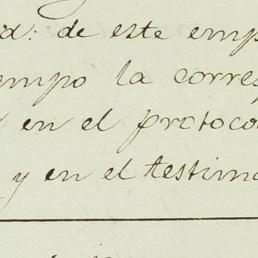 d: de este emp
empo la corres
en el protoco
y en el testimo